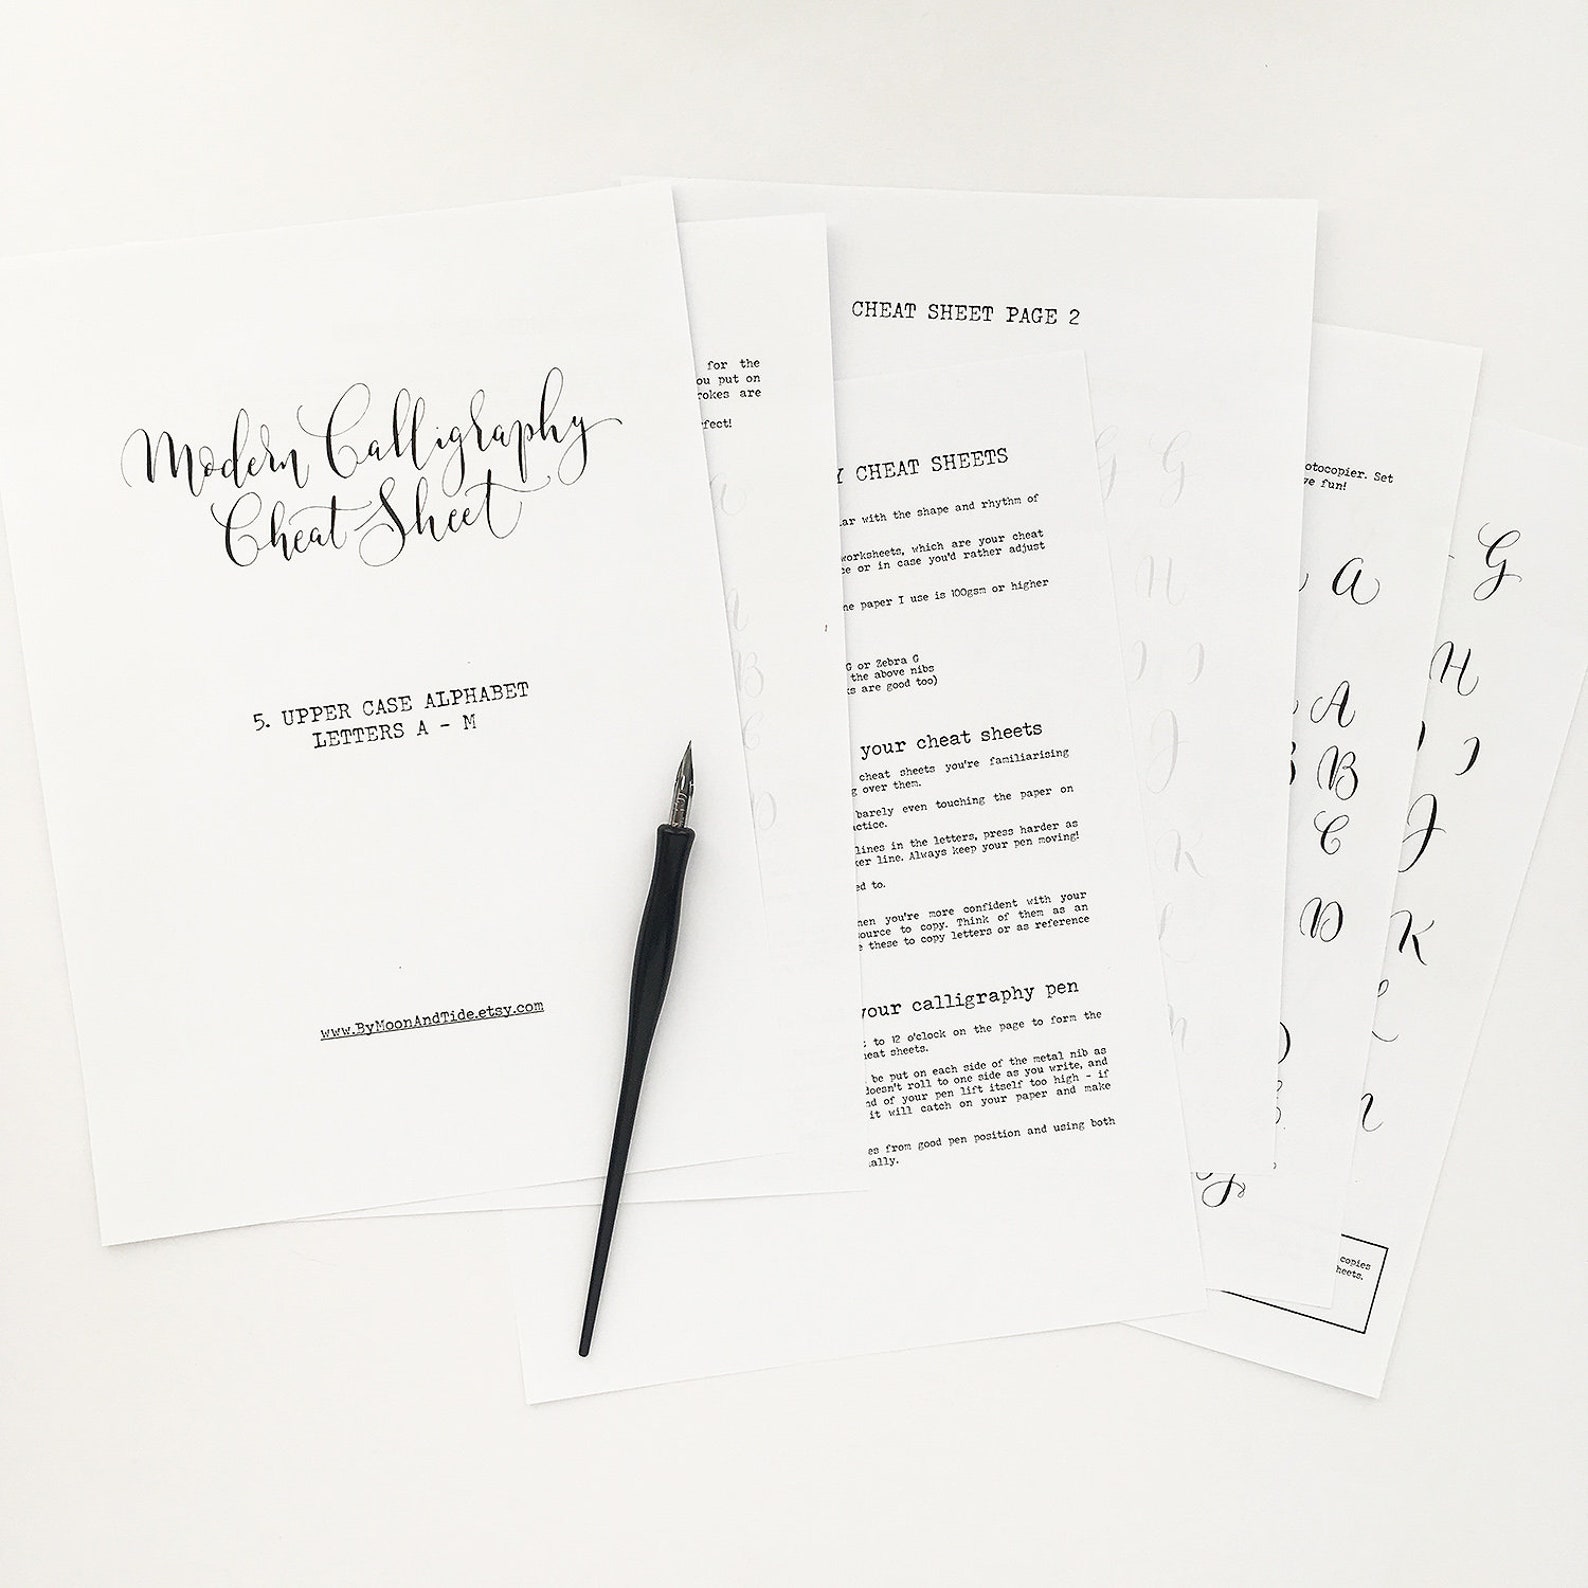 Modern Calligraphy
Cheat Sheet
5. UPPER CASE ALPHABET
LETTERS A - M
www.ByMoonAndTide.etsy.com
for the
put on
are
CHEAT SHEET PAGE 2
CHEAT SHEETS
with the shape and rhythm of
worksheets, which are your cheat
or in case you'd rather adjust
paper I use is 100gsm or higher
G or Zebra G
the above nibs
are good too)
your cheat sheets
cheat sheets you're familiarising
over them.
barely even touching the paper on
lines in the letters, press harder as
line. Always keep your pen moving!
to.
you're more confident with your
to copy. Think of them as an
these to copy letters or as reference
your calligraphy pen
to 12 o'clock on the page to form the
sheets.
be put on each side of the metal nib as
doesn't roll to one side as you write, and
of your pen lift itself too high - if
it will catch on your paper and make
from good pen position and using both
G G
H
I I
J
K
L
B
C
D
Set
fun!
A
A
B
C
D
copies
G
H
I
J
K